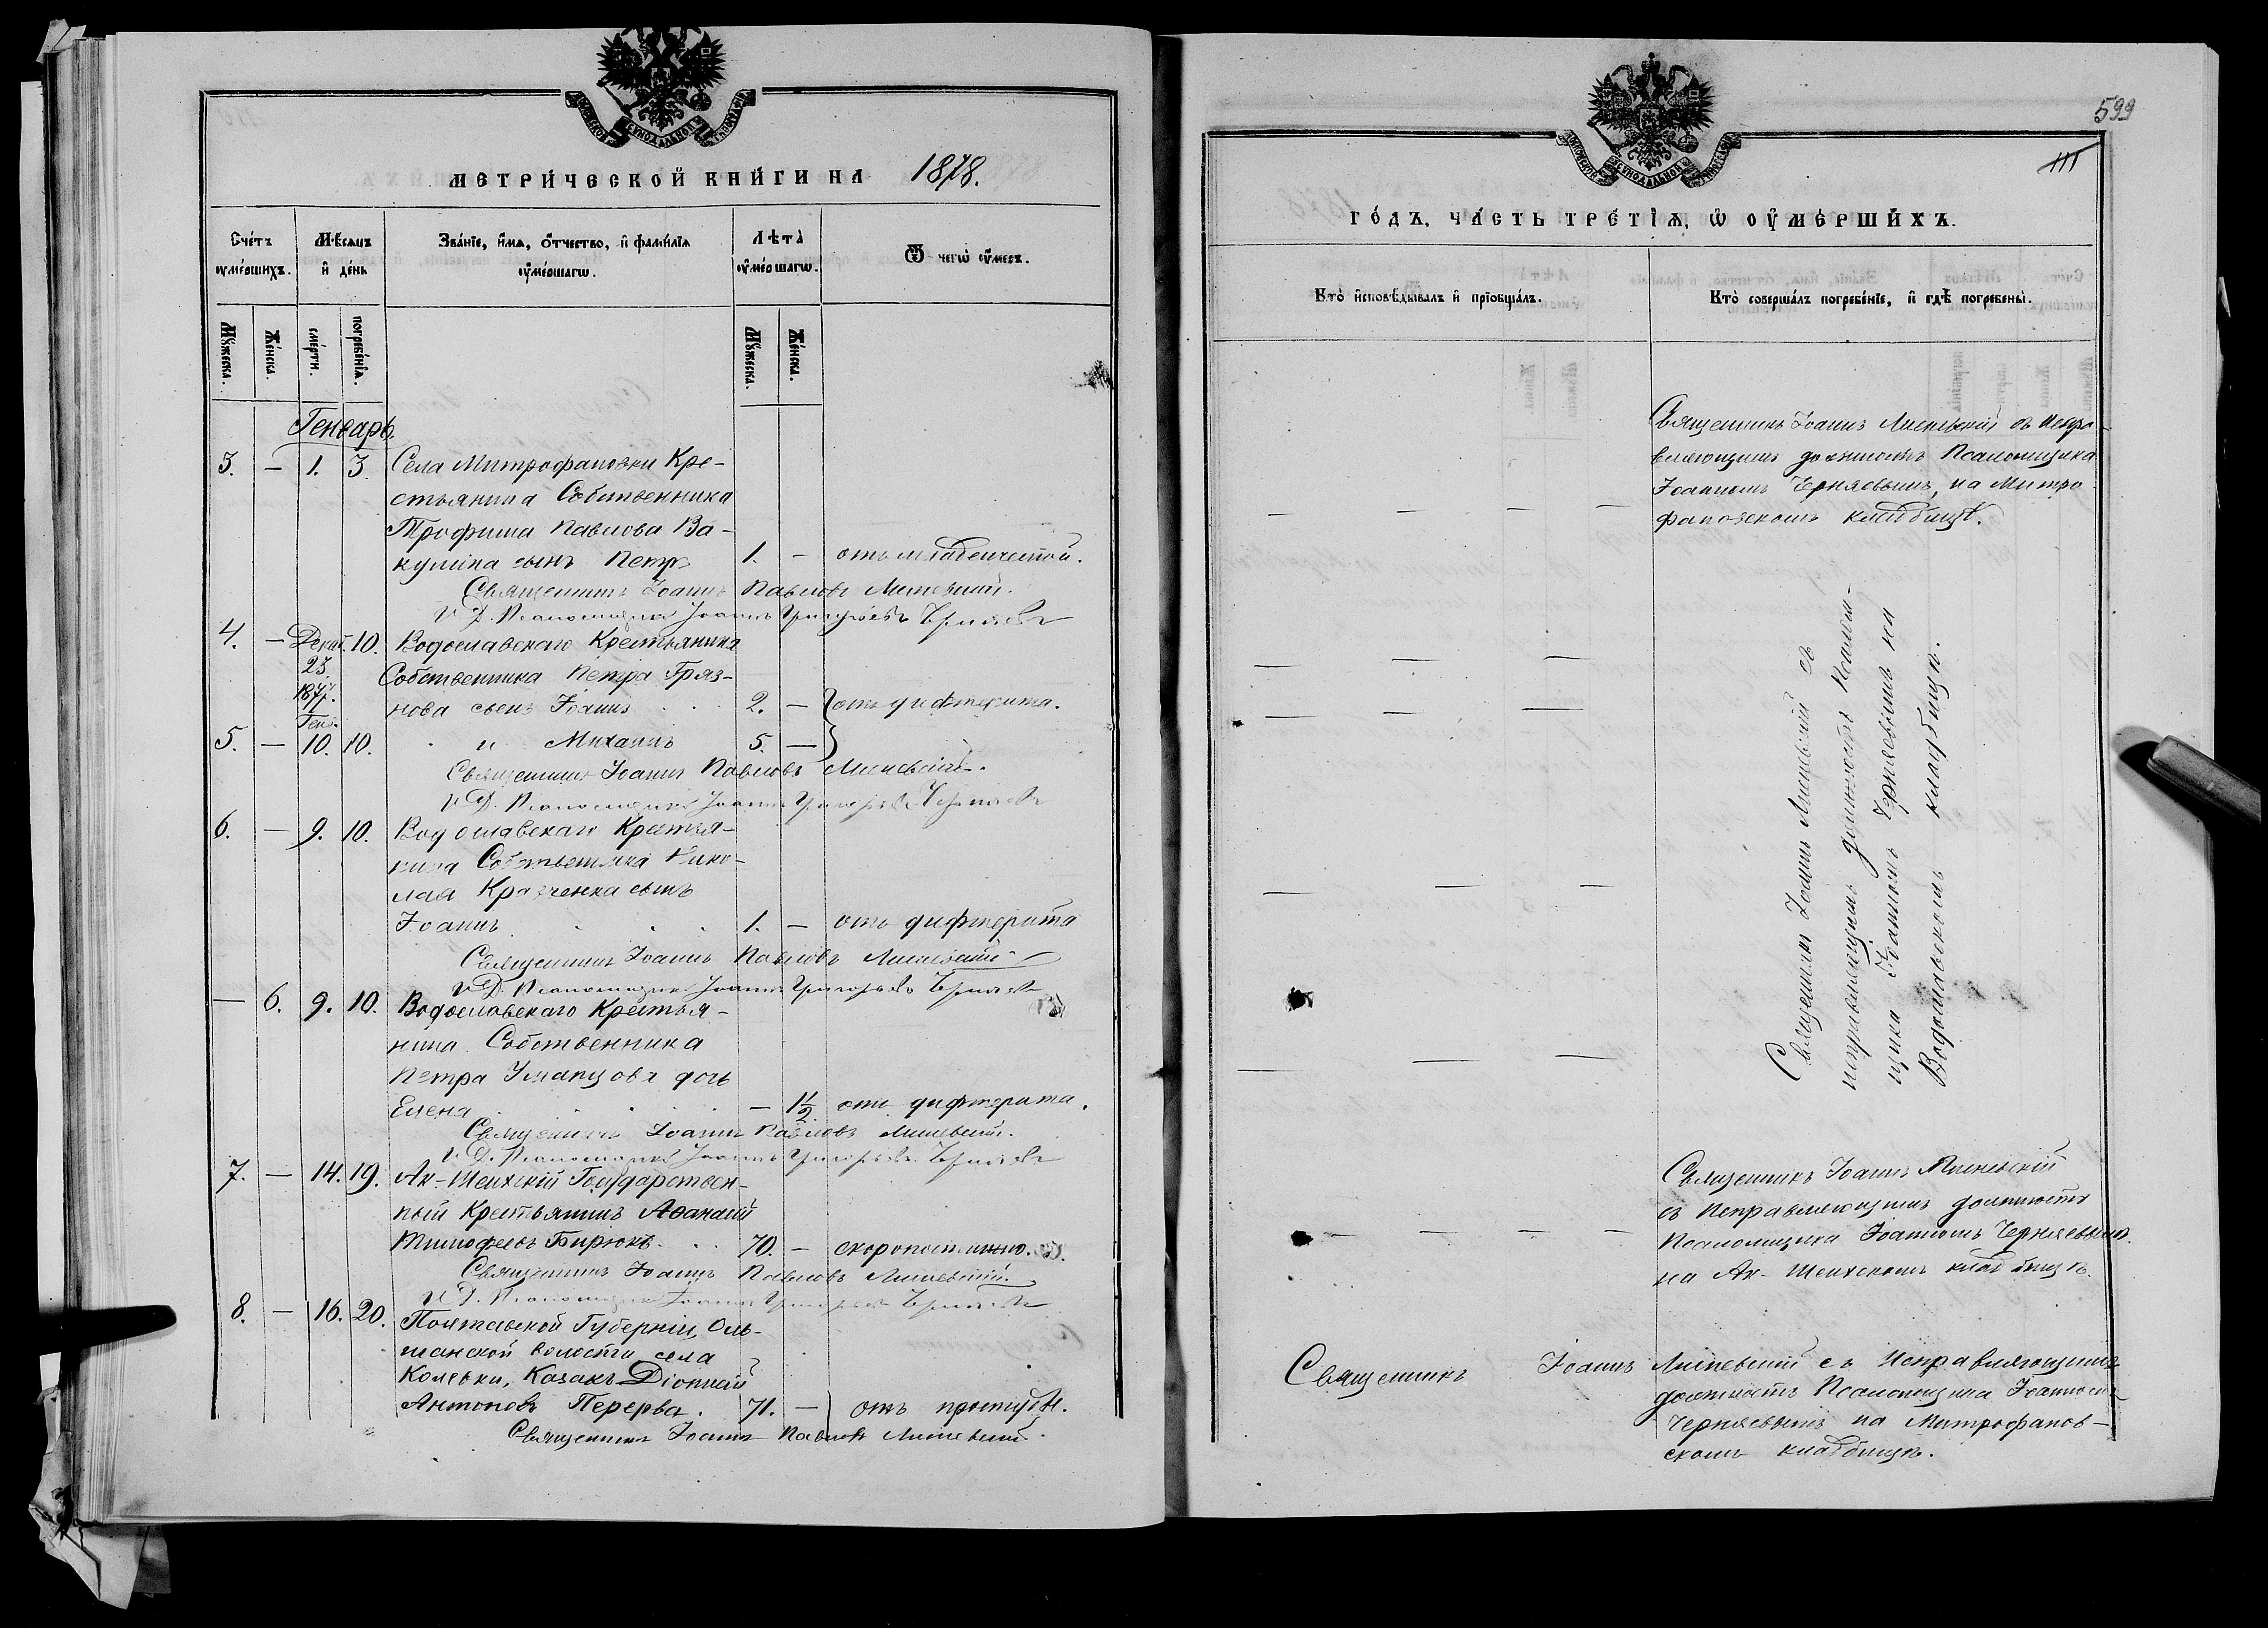 МЕТРИ́ЧЕСКОЙ КНИ́ГИ НА 1878.
Сче́тъ оумершихъ.
Мѣ́сяцъ и де́нь
Зва́нїе, и҆́мя, ѻ҆́тчество, и҆ фами́лїя оу҆ме́ршагѡ.
Лѣта̀ оу҆ме́ршагѡ.
Ѿ чегѡ̀ оу҆́меръ.
Мꙋ́жеска.
Же́нска.
сме́рти.
погребе́нїя.
Мꙋ́жеска.
Же́нска.
Генварь.
3. — 1. 3. Села Митрофановки Кре-
стьянина Собственника
Трофима Павлова Ва-
кулина сынъ Петръ 1. — отъ младенческой.
Священникъ Іоаннъ Павловъ
И. Д. Псаломщика Іоаннъ Григорьевъ Черняевъ
4. — Декаб. 23. 1877. 10. Водославскаго Крестьянина
Собственника Петра Гряз-
нова сынъ Іоаннъ 2. — отъ дифтерита.
5. — Генв. 10. 10. " и Михаилъ 5. —
Священникъ Іоаннъ Павловъ
И. Д. Псаломщика Іоаннъ Григорьевъ Черняевъ
6. — 9. 10. Водославскаго Крестья-
нина Собственника Нико-
лая Кравченка сынъ
Іоаннъ 1. — отъ дифтерита
Священникъ Іоаннъ Павловъ
И. Д. Псаломщика Іоаннъ Григорьевъ Черняевъ
— 6. 9. 10. Водославскаго Крестья-
нина Собственника
Петра Уманцова дочь
Елена — 1½ отъ дифтерита.
Священникъ Іоаннъ Павловъ
И. Д. Псаломщика Іоаннъ Григорьевъ Черняевъ
7. — 14. 19. Ак-Шеихскій Государствен-
ный Крестьянинъ Аѳанасій
Тимофеевъ Бирюкъ. 70. — скоропостижно.
Священникъ Іоаннъ Павловъ
И. Д. Псаломщика Іоаннъ Григорьевъ Черняевъ
8. — 16. 20. Полтавской Губерніи, Оль-
шанской волости села
Козакъ Діонисій
Антоновъ Перерва. 71. — отъ простуды.
Священникъ Іоаннъ Павловъ
599
III
ГО́ДЪ, ЧА́СТЬ ТРЕ́ТЇЯ, Ѡ҆ ОУ҆МЕ́РШИХЪ.
Кто̀ и҆сповѣ́дывалъ и҆ прїобща́лъ.
Кто̀ соверша́лъ погребе́нїе, и҆ гдѣ̀ погребены̀.
Священникъ Іоаннъ съ Испра-
вляющимъ должность Псаломщика
Іоанномъ Черняевымъ, на Митро-
фановскомъ кладбищѣ.
Священникъ Іоаннъ съ
исправляющимъ должность Псалом-
щика Іоанномъ Черняевымъ на
Водославскомъ кладбищѣ.
Священникъ Іоаннъ
съ Исправляющимъ должность
Псаломщика Іоанномъ Черняевымъ.
на Ак-Шеихскомъ кладбищѣ.
Священникъ Іоаннъ съ Исправляющимъ
должность Псаломщика Іоанномъ
Черняевымъ на Митрофанов-
скомъ кладбищѣ.